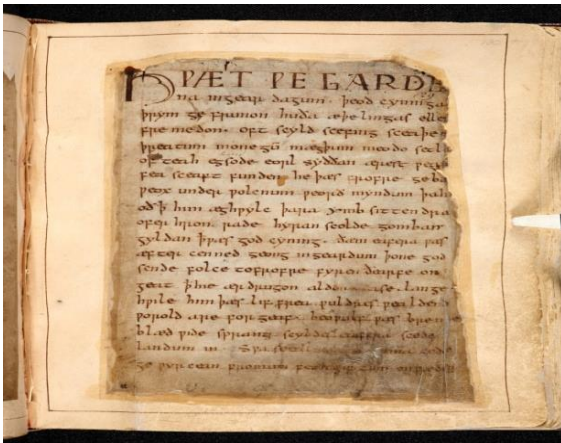 HǷÆT ǷE GARDE
na in gear dagum . þeod cyninga
þrym ge frunon huða æþelingas elle
fre medon . oft scyld scefing sceaþe
þreatum monegū mægþum meodo setla
of teah egsode eorl syððan ærest ƿear
fea sceaft funden he þæs frofre geba
ƿeox under ƿolcnum ƿeorð myndum þah
oð ꝥ him æghƿylc þara ymb sittendra
ofer hron rade hyran scolde gomban
gyldan ꝥ ƿæs god cyning . ðæm eafera ƿæs
æfter cenned geong in geardum þone god
sende folce to frofre fyren ðearfe on
geat ꝥ hie ær drugon aldor ase . lange
hƿile him þæs lif frea ƿuldres ƿealdend
ƿorold are for geaf . beoƿulf ƿæs breme
blæd ƿide sprang scyldes eafera scede
landum in . Sƿa sceal guma gode
ge ƿyrcean fromum feoh giftum on fæder